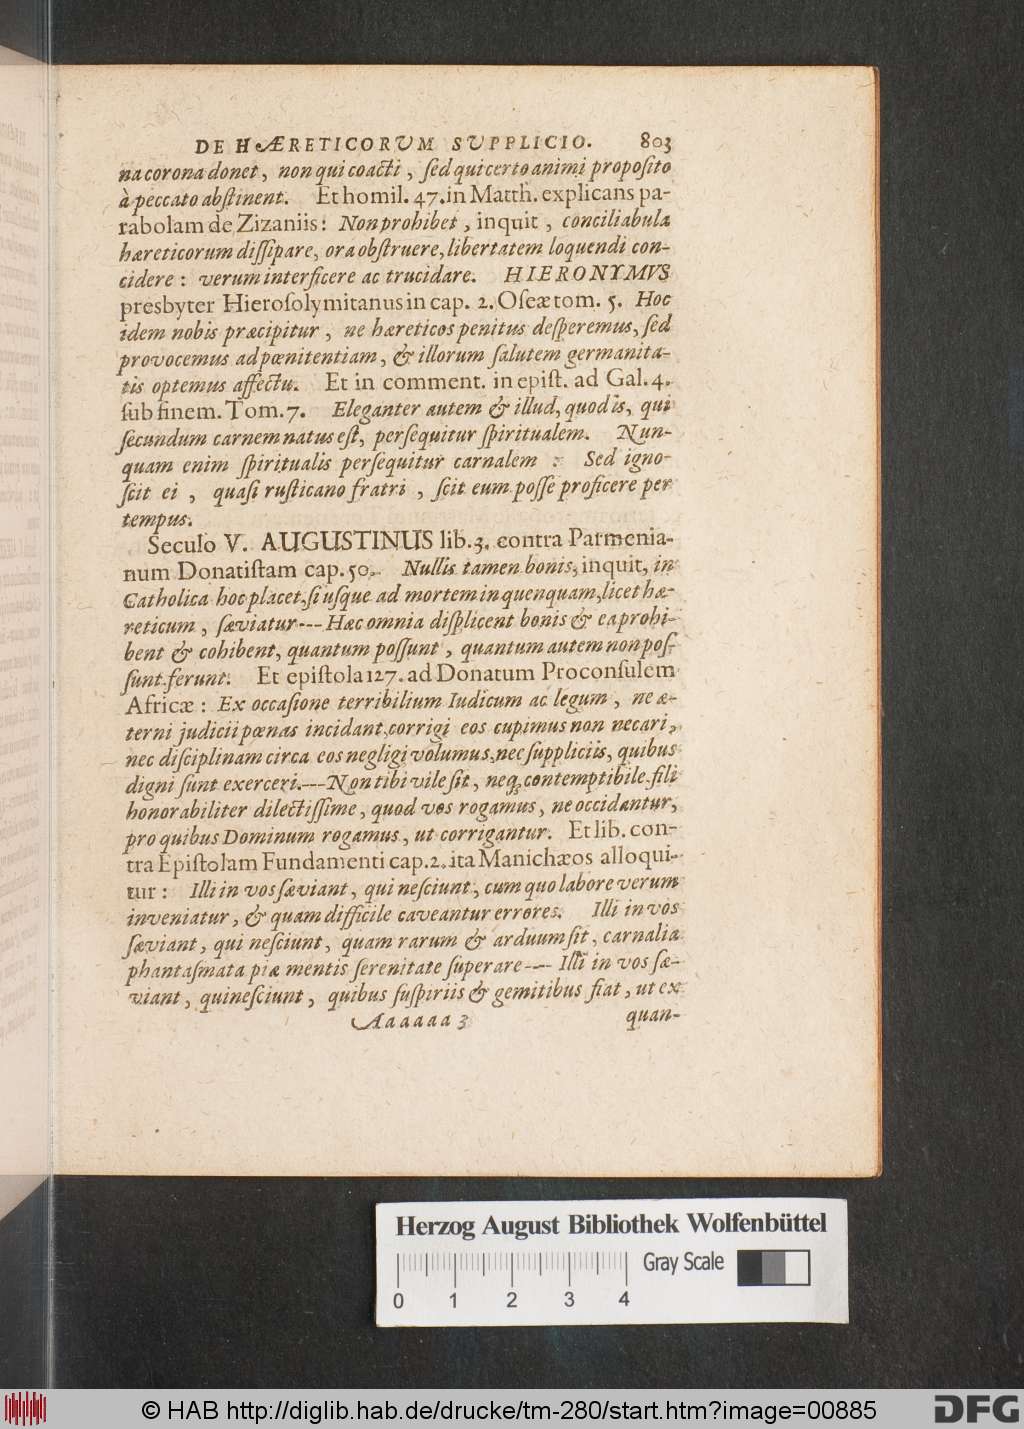 DE HÆRETICORVM SVPPLICIO. 803
na corona donet, non qui coacti, ſed qui certo animi propoſito
à peccato abſtinent. Et homil. 47. in Matth. explicans pa-
rabolam de Zizaniis: Non prohibet, inquit, conciliabula
hæreticorum diſſipare, ora obſtruere, libertatem loquendi con-
cidere: verum interficere ac trucidare. HIERONYMVS
presbyter Hieroſolymitanus in cap. 2. Oſeæ tom. 5. Hoc
idem nobis præcipitur, ne hæreticos penitus deſperemus, ſed
provocemus ad pœnitentiam, & illorum ſalutem germanita-
tis optemus affectu. Et in comment. in epiſt. ad Gal. 4.
ſub finem. Tom. 7. Eleganter autem & illud, quod is, qui
ſecundum carnem natus eſt, perſequitur ſpiritualem. Nun-
quam enim ſpiritualis perſequitur carnalem : Sed igno-
ſcit ei, quaſi ruſticano fratri, ſcit eum poſſe proficere per
tempus.
Seculo V. AUGUSTINUS lib. 3. contra Parmenia-
num Donatiſtam cap. 50. Nullis tamen bonis, inquit, in
Catholica hoc placet, ſi uſque ad mortem in quenquam, licet hæ-
reticum, ſæviatur --- Hæc omnia diſplicent bonis & ea prohi-
bent & cohibent, quantum poſſunt, quantum autem non poſ-
ſunt. ferunt. Et epiſtola 127. ad Donatum Proconſulem
Africæ: Ex occaſione terribilium Iudicum ac legum, ne æ-
terni judicii pœnas incidant, corrigi eos cupimus non necari,
nec diſciplinam circa eos negligi volumus, nec ſuppliciis, quibus
digni ſunt exerceri. --- Non tibi vile ſit, neq; contemptibile. fili
honorabiliter dilectiſſime, quod vos rogamus, ne occidantur,
pro quibus Dominum rogamus, ut corrigantur. Et lib. con-
tra Epiſtolam Fundamenti cap. 2. ita Manichæos alloqui-
tur: Illi in vos ſæviant, qui neſciunt, cum quo labore verum
inveniatur, & quam difficile caveantur errores. Illi in vos
ſæviant, qui neſciunt, quam rarum & arduum ſit, carnalia
phantaſmata piæ mentis ſerenitate ſuperare --- Illi in vos ſæ-
viant, qui neſciunt, quibus ſuſpiriis & gemitibus fiat, ut ex
Aaaaaa 3 quan-
Herzog August Bibliothek Wolfenbüttel
Gray Scale
0 1 2 3 4
© HAB http://diglib.hab.de/drucke/tm-280/start.htm?image=00885
DFG